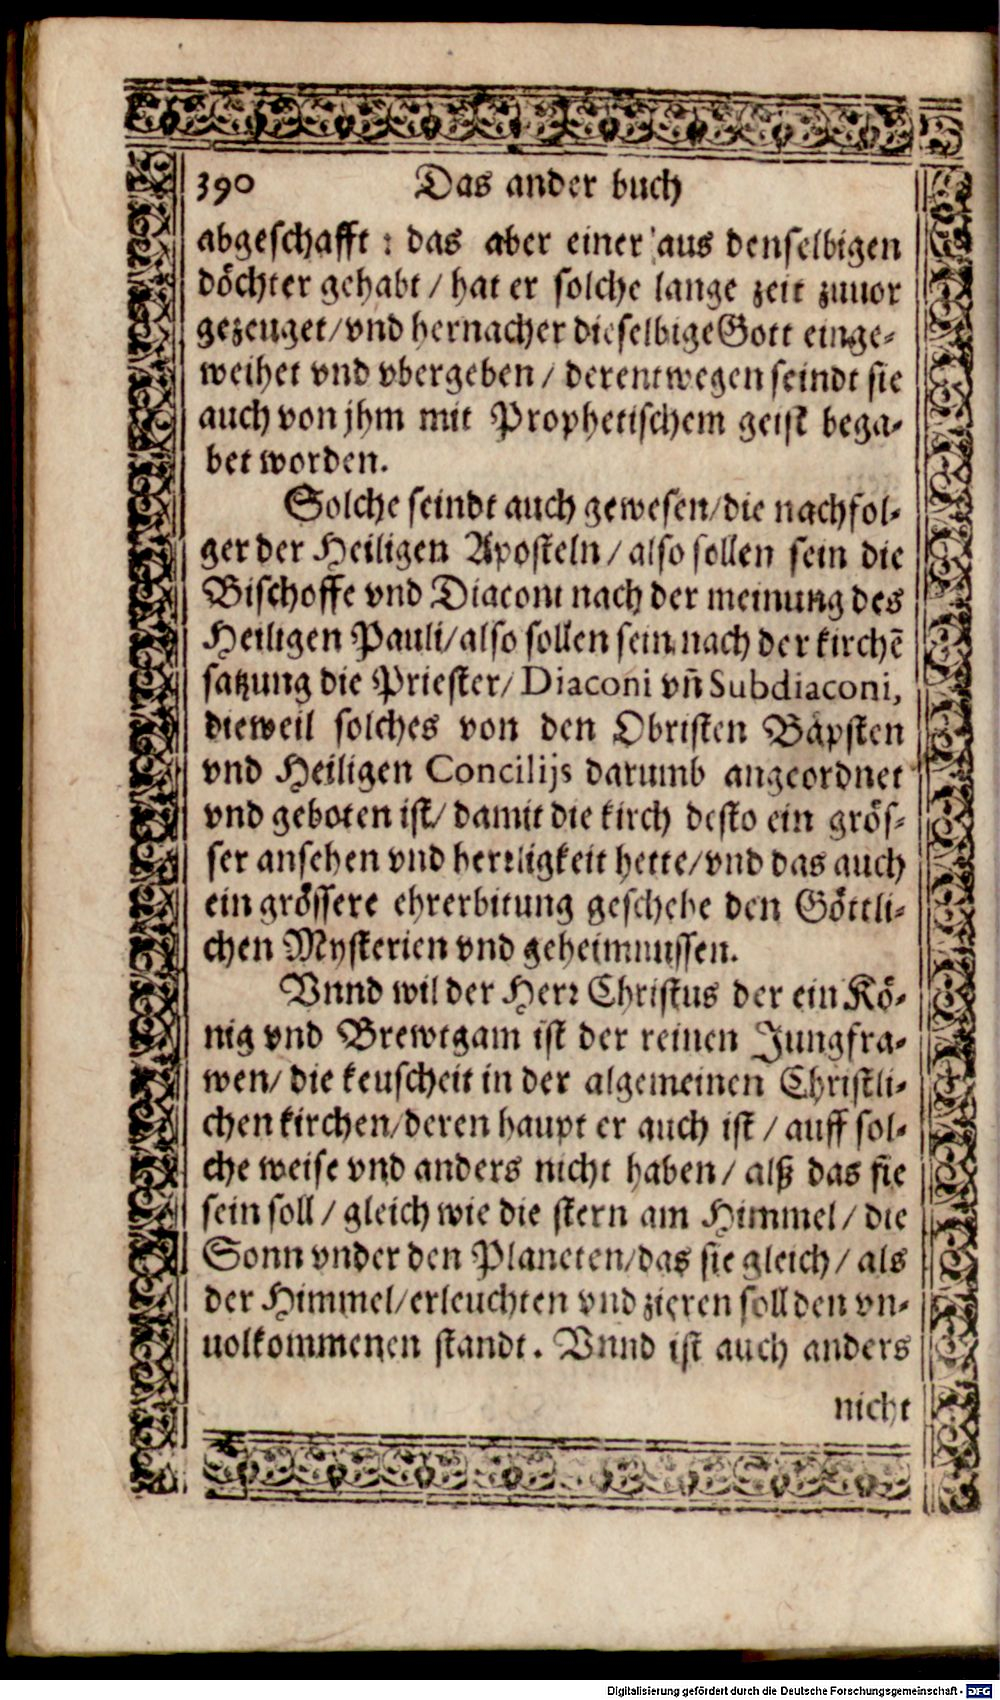 390 Das ander buch
abgeschafft: das aber einer aus denselbigen
döchter gehabt / hat er solche lange zeit zuuor
gezeuget/vnd hernacher dieselbige Gott einge-
weihet vnd vbergeben / derentwegen seindt sie
auch von jhm mit Prophetischem geist bega-
bet worden.
Solche seindt auch gewesen/die nachfol-
ger der Heiligen Aposteln / also sollen sein die
Bischoffe vnd Diaconi nach der meinung des
Heiligen Pauli/also sollen sein nach der kirchē
satzung die Priester/ Diaconi vñ Subdiaconi,
dieweil solches von den Obristen Bäpsten
vnd Heiligen Concilijs darumb angeordnet
vnd geboten ist/ damit die kirch desto ein grös-
ser ansehen vnd herrligkeit hette/vnd das auch
ein grössere ehrerbitung geschehe den Göttli-
chen Mysterien vnd geheimnussen.
Vnnd wil der Herr Christus der ein Kö-
nig vnd Brewtgam ist der reinen Jungfra-
wen/ die keuscheit in der algemeinen Christli-
chen kirchen/deren haupt er auch ist / auff sol-
che weise vnd anders nicht haben/ alß das sie
sein soll / gleich wie die stern am Himmel / die
Sonn vnder den Planeten/das sie gleich / als
der Himmel/erleuchten vnd zieren soll den vn-
uolkommenen standt. Vnnd ist auch anders
nicht
Digitalisierung gefördert durch die Deutsche Forschungsgemeinschaft - DFG